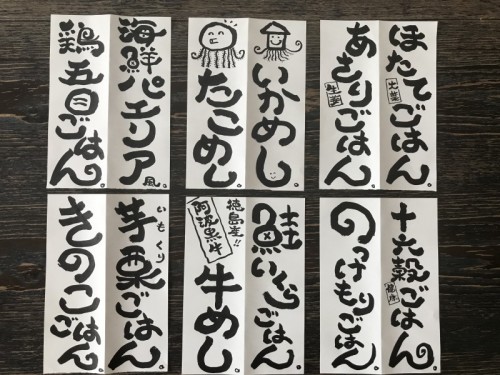 ほたてごはん。
大葉
あさりごはん。
生姜
いかめし。
たこめし。
海鮮パエリア風。
鶏五目ごはん。
十六穀ごはん。
健康
のっけもりごはん。
鮭いくらごはん。
徳島産!!
阿波黒牛
牛めし
いもくり
芋栗ごはん。
きのこごはん。